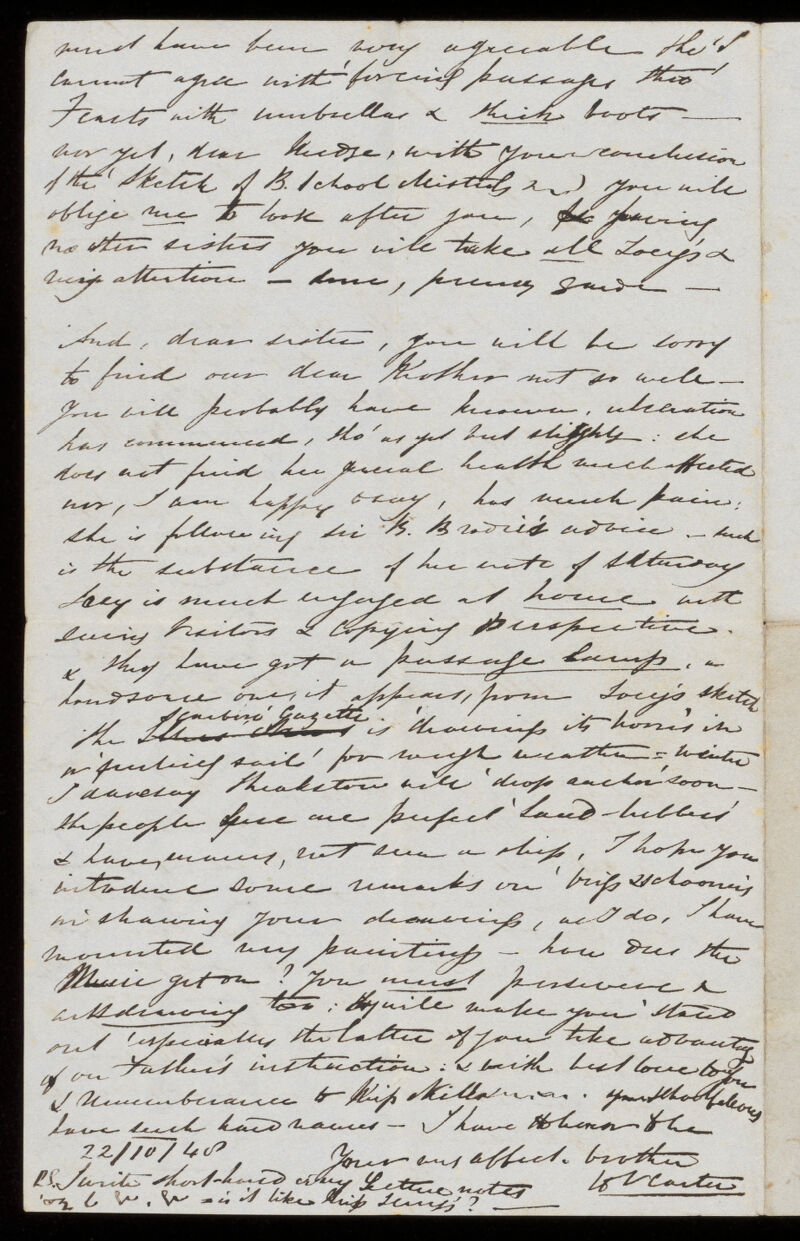 must have been very agreeable tho' I
cannot agree with 'forcing passages thro'
Feasts with umbrellas & thick boots —
nor yet, dear with your conclusion
of the 'Sketch of B. School you will
oblige me to look after you, having
no other sisters you will take all Lucy's &
my attention —
And, dear sister, you will be sorry
to find our dear Mother not so well —
You will probably have known, ulceration
has commenced, tho' as yet but slightly: she
does not find her general health much affected
nor, I am happy to say, has much pain:
she is following Sir B. Brodie's advice — such
is the substance of her note of Saturday
Lucy is much engaged at home with
seeing Visitors & Copying Perspective.
& they have got a passage Lamp, a
handsome one, it appears, from Lucy's sketch
Scarboro' Gazette
The is 'drawing its horns in
or 'furling sail' for rough weather = winter
I daresay Theakston will 'drop anchor' soon —
the people here are perfect 'Land-lubbers'
& have, many, not seen a ship, I hope you
introduce some remarks on 'brigs & schooners
in shewing your drawings, as I do, I have
mounted my paintings — how does the
Music get on? You must persevere &
drawing too: will make you 'stand
out' especially the latter if you take advantage
of our Father's instruction: & with best love to you
& Remembrance to Miss your Schoolfellows
have such hard names — I have the honor to be
22/10/48 Your very affect. brother
H V Carter
P.S. I write short-hand in my Lecture notes
is it like Miss